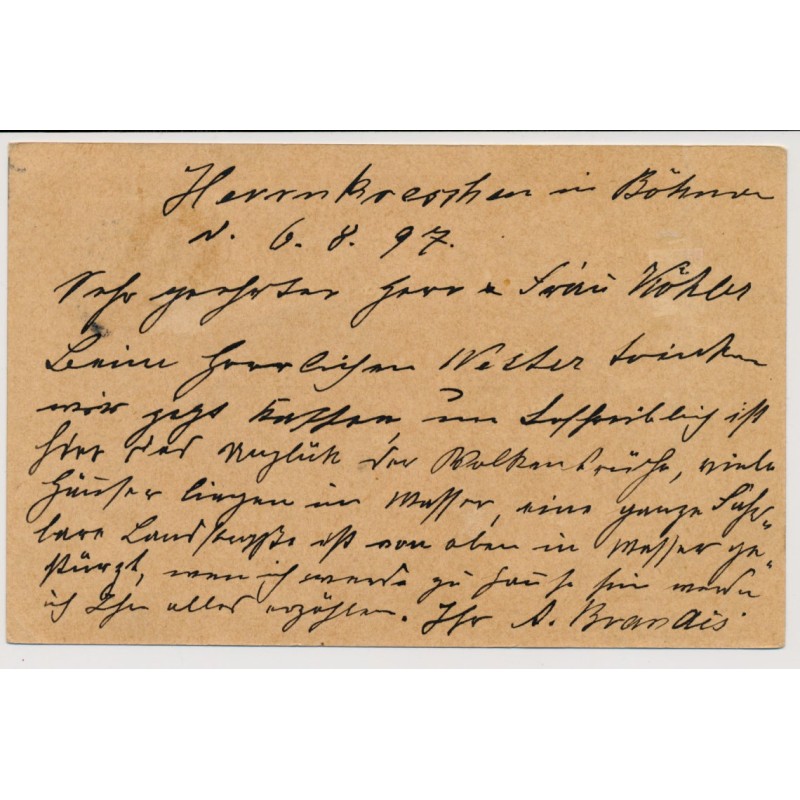 Herrnkreschen in Böhmen
d. 6. 8. 97.
Sehr geehrter Herr u Frau Köhler
Beim herrlichen Wetter trinken
wir jezt Kaffee, un beschreiblich ist
hier das Unglück der Wolkenbrüche, viele
Häuser liegen im Wasser, eine ganze Fahr-
bare Landstraße ist von oben in Wasser ge-
stürzt, wen ich werde zu Hause sein werde
ich Ihn alles erzählen. Ihr A. Brandis